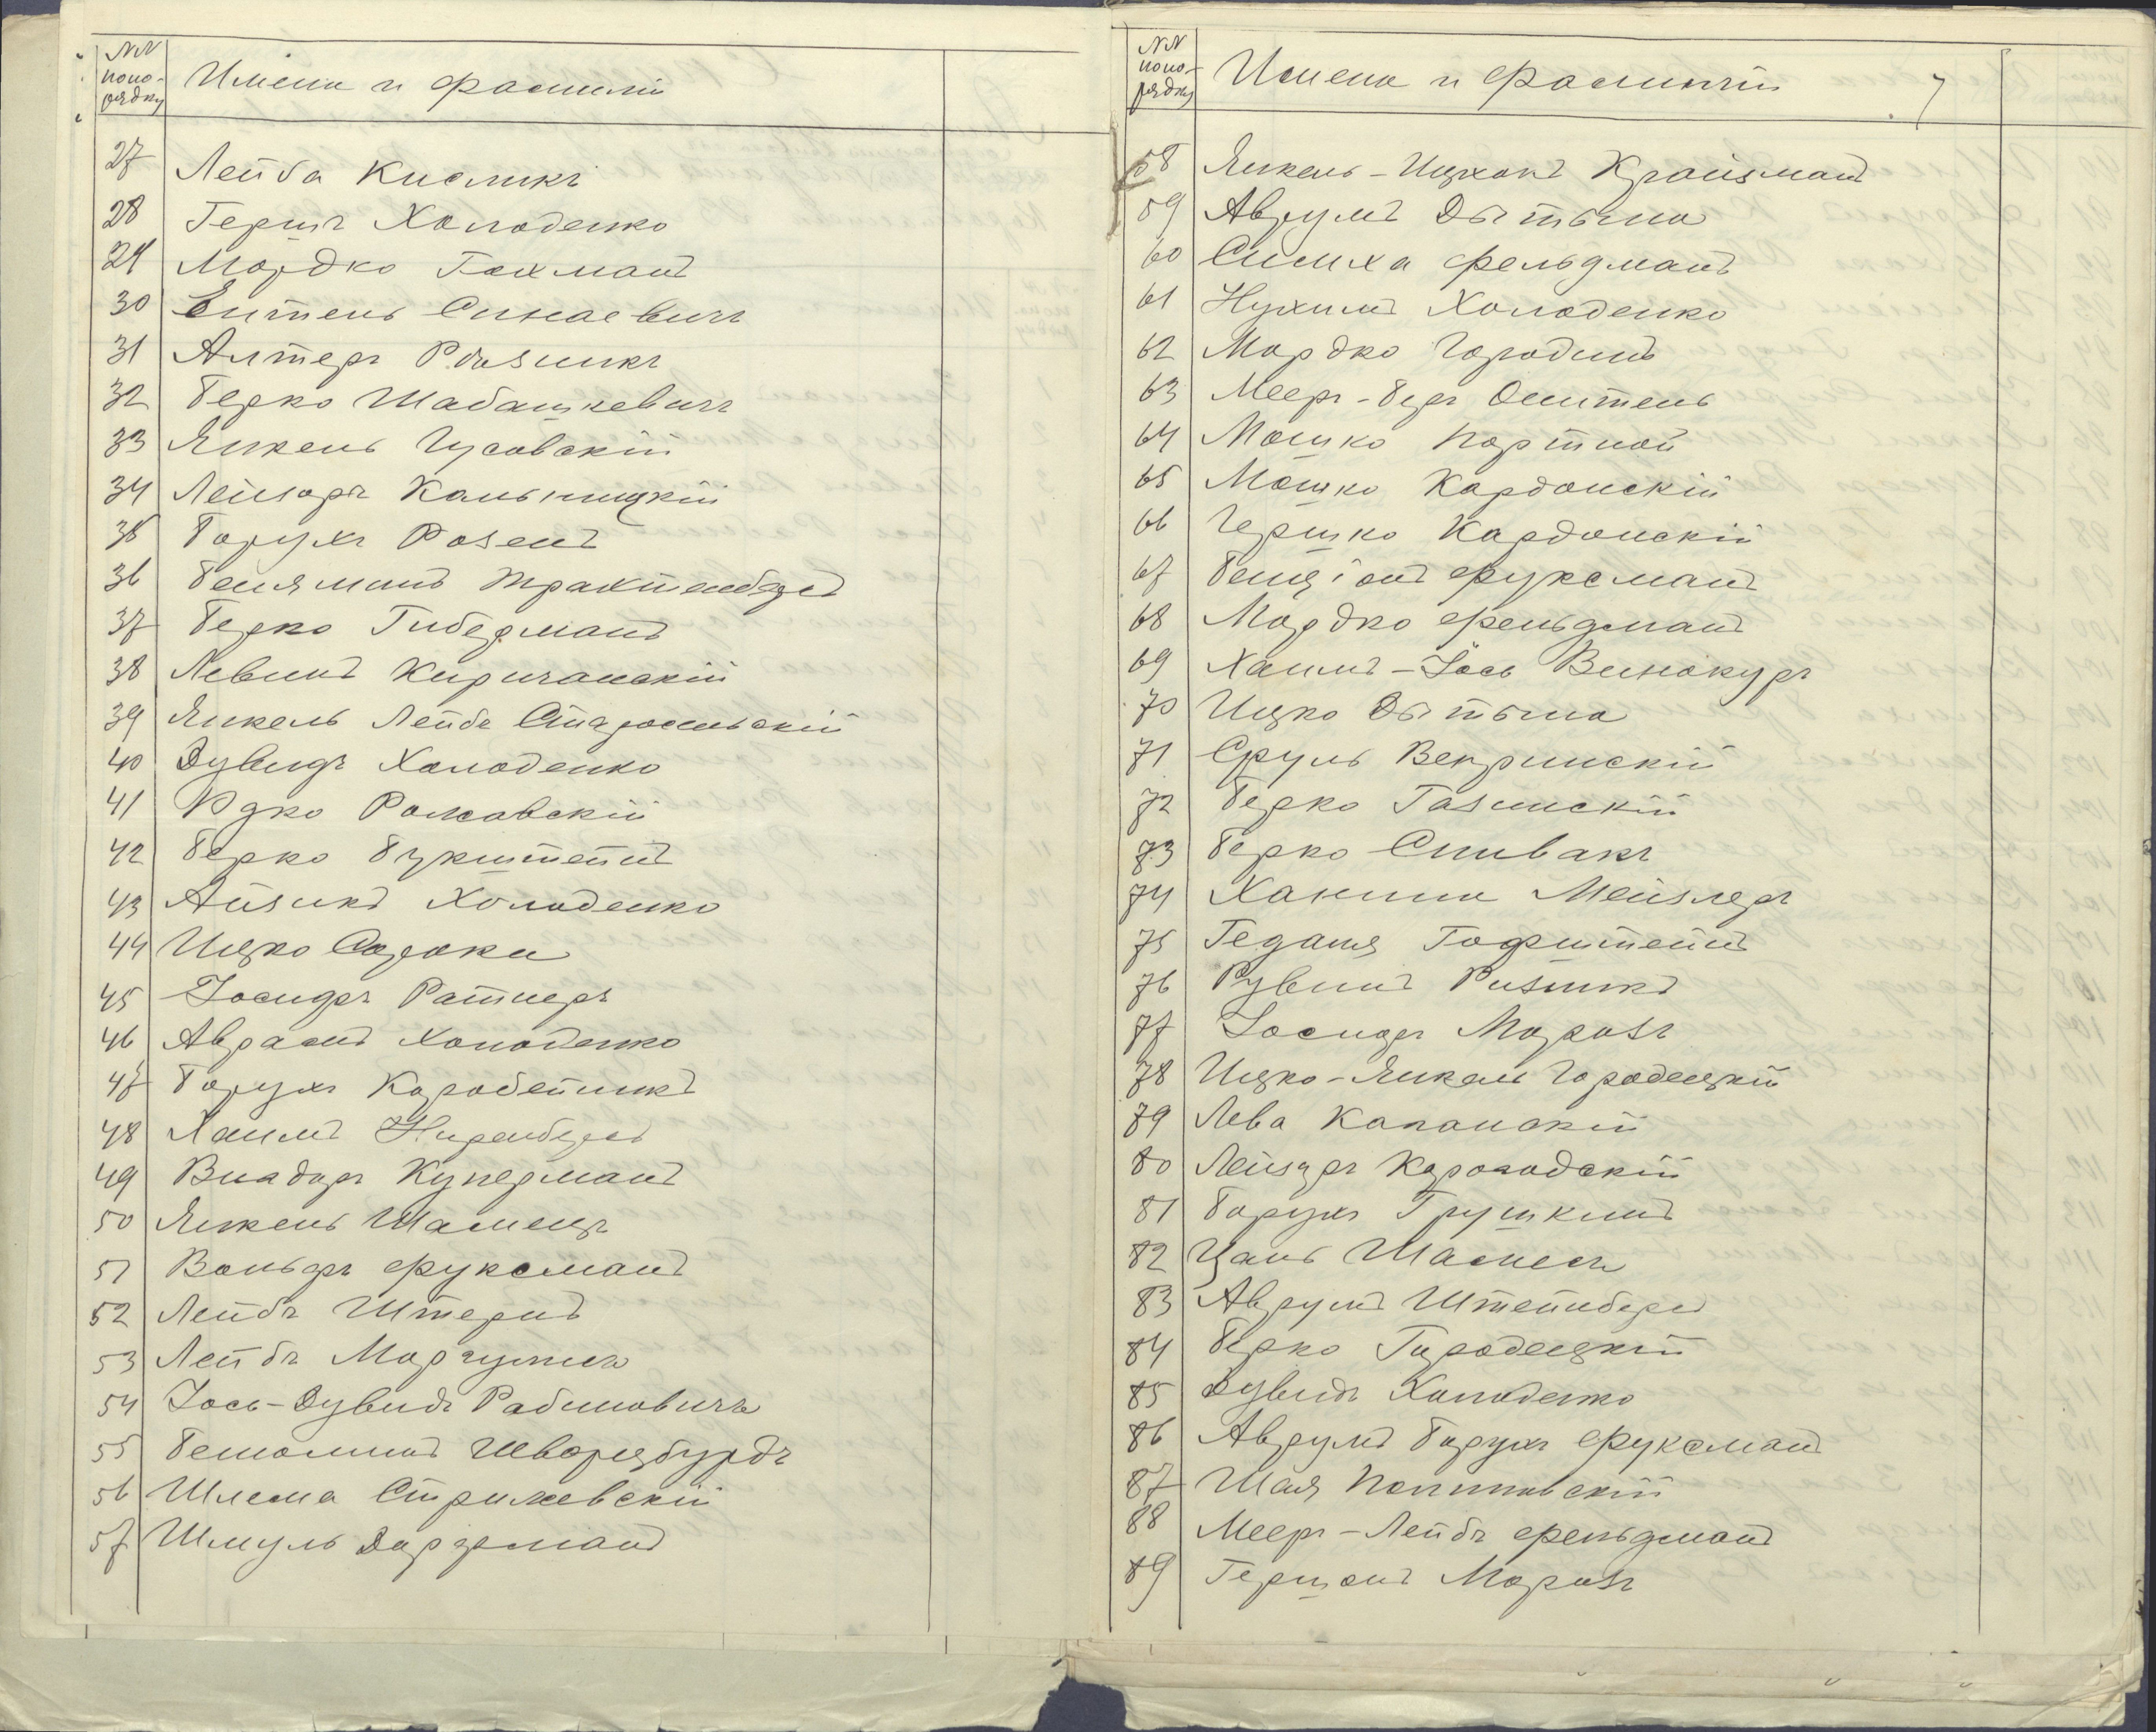 NN
попо-
рядку
Имена и фамиліи
27 Лейба Кисликъ
28 Гершъ Холоденко
29 Мордко Гохманъ
30 Ентель Синаевичъ
31 Алтеръ
32 Берко Шабашкевичъ
33 Янкель Гусовскій
34 Лейзоръ Кальницкій
35 Борухъ Розенъ
36 Беняминъ Трахтенбергъ
37 Берко Гиберманъ
38 Левинъ Киричанскій
39 Янкель Лейба Старосельскій
40 Дувидъ Холоденко
41 Рожовскій
42 Берко Букштейнъ
43 Айзикъ Холоденко
44 Ицко Сорока
45 Іосифъ Ратнеръ
46 Аврамъ Холоденко
47 Борухъ Коробейникъ
48 Хаимъ Ниренбергъ
49 Куперманъ
50 Янкель Шамецъ
51 Вольфъ Фуксманъ
52 Лейбъ Штернъ
53 Лейбъ Маргулисъ
54 Іось-Дувидъ Рабиновичъ
55 Шворцбурдъ
56 Шлема Стрижевскій
57 Шмуль Дорфманъ
NN
попо-
рядку
Имена и фамиліи
7
58 Янкель-Ицхокъ Крайзманъ
59 Аврумъ Дытына
60 Симха Фельдманъ
61 Нухимъ Холоденко
62 Мордко Городинъ
63 Мееръ-Беръ
64 Мошко Портной
65 Мошко Кардонскій
66 Гершко Кардонскій
67 Бенціонъ Фуксманъ
68 Мордко Фельдманъ
69 Хаимъ-Іось Винокуръ
70 Ицко Дытына
71 Сруль Вепринскій
72 Берко Газинскій
73 Берко Спивакъ
74 Ханина Мейзлеръ
75 Гедаля Гофштейнъ
76 Рувинъ Ризникъ
77 Іосифъ Морозъ
78 Ицко-Янкель Городецкій
79 Лева Капанскій
80 Лейзеръ Корогодскій
81 Борухъ Грушкинъ
82 Цаль Шамесъ
83 Аврумъ Штейнбергъ
84 Берко Городецкій
85 Дувидъ Холоденко
86 Аврумъ Борухъ Фуксманъ
87 Шая
88 Мееръ-Лейбъ Фельдманъ
89 Гершонъ Морозъ